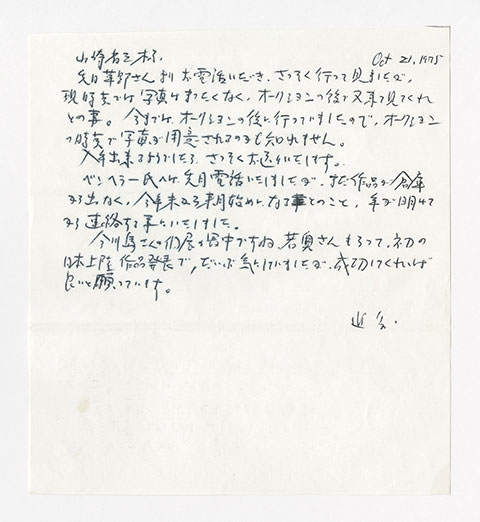 Oct 21, 1975
先日草野さんよりお電話いただき、さっそく行って見ましたが、
現時点では写真はまったくなく、オークションの後で又来て見てくれ
との事。今までは、オークションの後に行っていましたので、オークション
の時点で写真が用意されてるのかも知れません。
入手出来ましたら、さっそくお送りいたします。
氏へは先月電話いたしましたが、まだ作品が倉庫
から出なく、今年末から来月始めになるとのこと、年が明けて
から連絡する事にいたしました。
今川島さんの個展が開中ですね。若奥さんもらって、初の
日本上陸作品発表で、だいぶ気にしていましたが、成功してくれれば
良いと願っています。